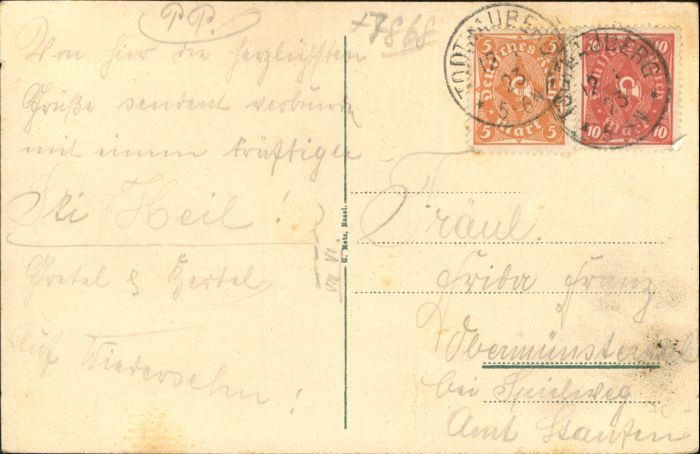 P.P.
Von hier die herzlichsten
Grüße sendent verbunden
mit einem kräftigen
Ski Heil!
Gretel & Hertel
Auf Wiedersehn!
+7868
G. Metz, Basel.
TODTNAUBERG
12
23
5
Deutsches Reich
5 Mark 5
TODTNAUBERG
12
23
10 10
Deutsches Reich
10 Mark 10
Fräul.
Frida Franz
Obermünstertal
bei Spielweg
Amt Staufen